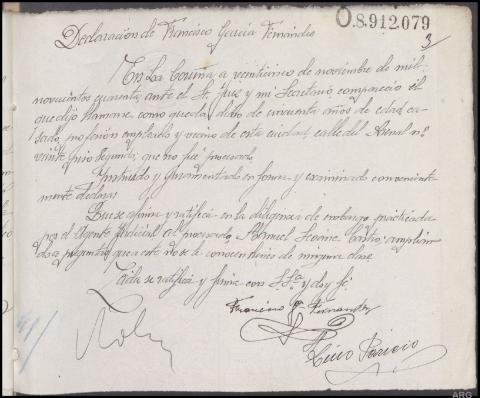 O.8.912.079
3
Declaración de Francisco García Fernández
En La Coruña a veinticinco de noviembre de mil
novecientos cuarenta, ante el Sr. Juez y mi Secretario compareció el
que dijo llamarse como queda dicho de cincuenta años de edad, ca-
sado, profesión empleado y vecino de esta ciudad, calle del Arenal nº
veinte piso segundo; que no fué procesado
Instruido y juramentado en forma y examinado conveniente-
mente declara:
Que se afirma y ratifica en la diligencia de embargo practicada
por el Agente Judicial al procesado, Manuel Castro; amplian-
do a preguntas que a este no se le conocen bienes de ninguna clase
Leida se ratifica y firma con S.Sª y doy fé.
Francisco Gª Fernandez